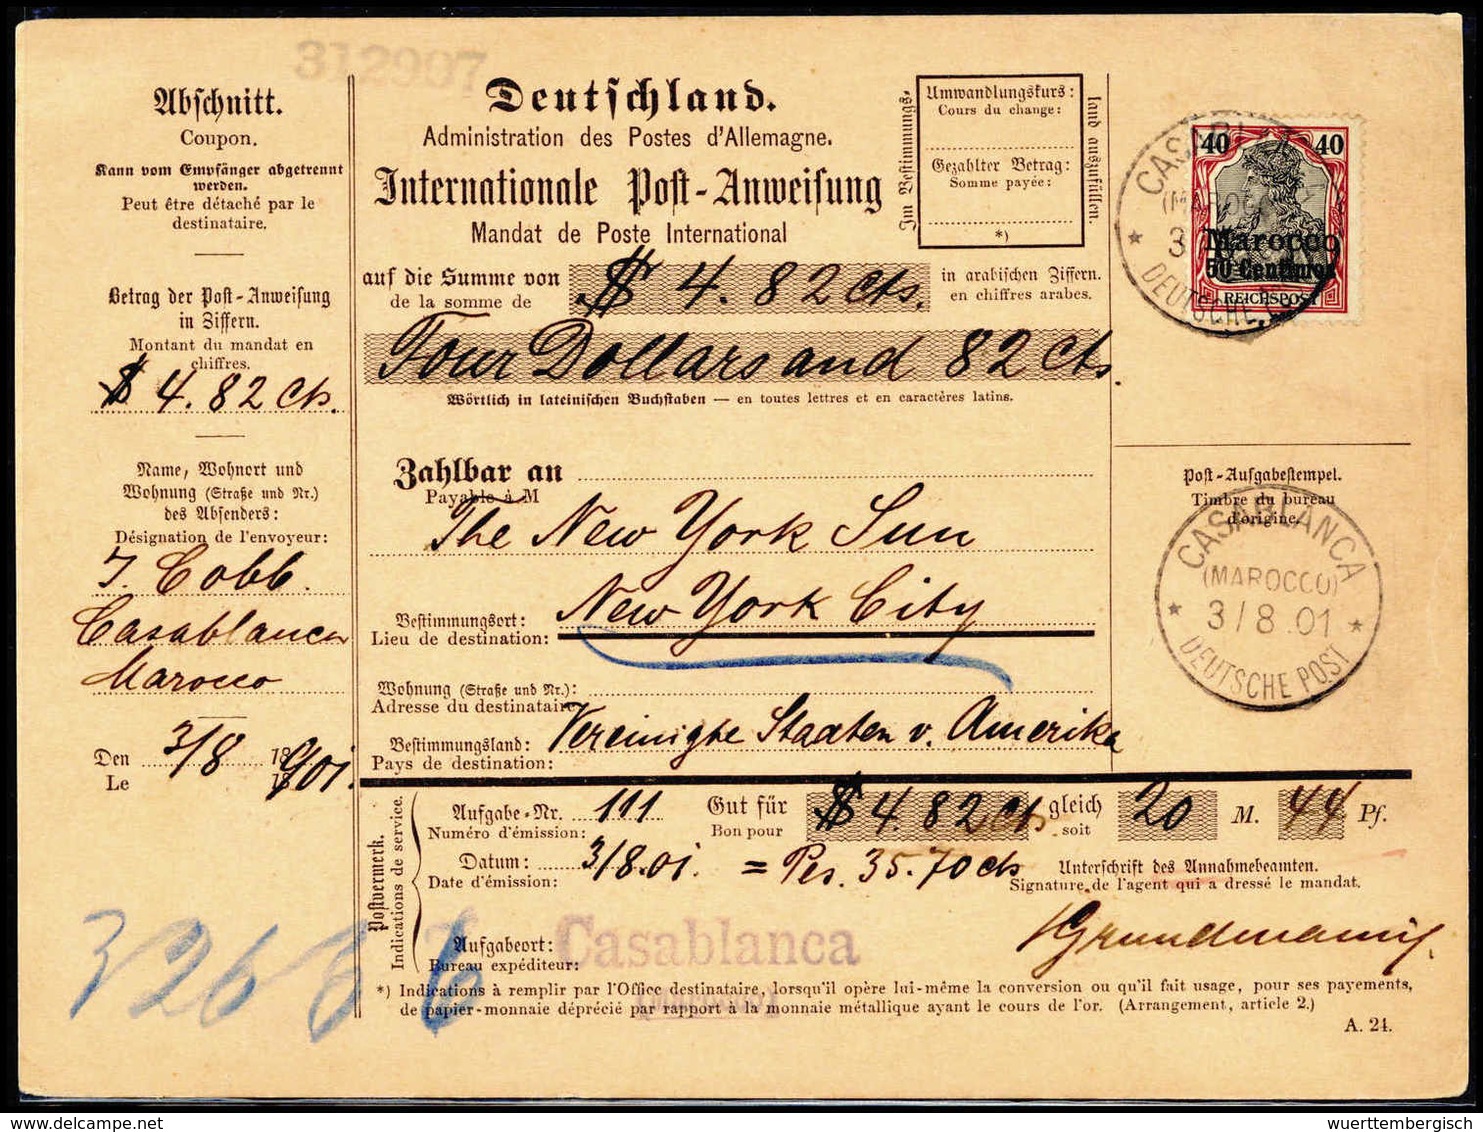 312907
Abschnitt.
Coupon.
Kann vom Empfänger abgetrennt
werden.
Peut être détaché par le
destinataire.
Betrag der Post-Anweisung
in Ziffern.
Montant du mandat en
chiffres.
$ 4. 82 Cts.
Name, Wohnort und
Wohnung (Straße und Nr.)
des Absenders:
Désignation de l'envoyeur:
J. Cobb.
Casablanca
Marocco
Den 3/8 1901.
Le
Deutschland.
Administration des Postes d'Allemagne.
Internationale Post-Anweisung
Mandat de Poste International
Im Bestimmungs-
land auszufüllen.
Umwandlungskurs:
Cours du change:
Gezahlter Betrag:
Somme payée:
*)
auf die Summe von $ 4. 82 Cts. in arabischen Ziffern.
de la somme de en chiffres arabes.
Four Dollars and 82 Cts.
Wörtlich in lateinischen Buchstaben — en toutes lettres et en caractères latins.
Zahlbar an
Payable à M
The New York Sun
Bestimmungsort: New York City
Lieu de destination:
Wohnung (Straße und Nr.):
Adresse du destinataire
Bestimmungsland: Vereinigte Staaten v. Amerika
Pays de destination:
40 40
Marocco
50 Centimos
REICHSPOST
CASABLANCA
(MAROCCO)
DEUTSCHE POST
Post-Aufgabestempel.
Timbre du bureau
d'origine.
CASABLANCA
(MAROCCO)
* 3/8.01 *
DEUTSCHE POST
Postvermerk.
Indications de service.
Aufgabe-Nr. 111 Gut für $ 4. 82 Cts gleich 20 M. 44 Pf.
Numéro d'émission: Bon pour soit
Datum: 3/8.01. = Pes. 35.70 cts
Date d'émission:
Unterschrift des Annahmebeamten.
Signature de l'agent qui a dressé le mandat.
Aufgabeort: Casablanca
Bureau expéditeur:
(Marocco)
*) Indications à remplir par l'Office destinataire, lorsqu'il opère lui-même la conversion ou qu'il fait usage, pour ses payements,
de papier-monnaie déprécié par rapport à la monnaie métallique ayant le cours de l'or. (Arrangement, article 2.)
A. 24.
wuerttembergisch